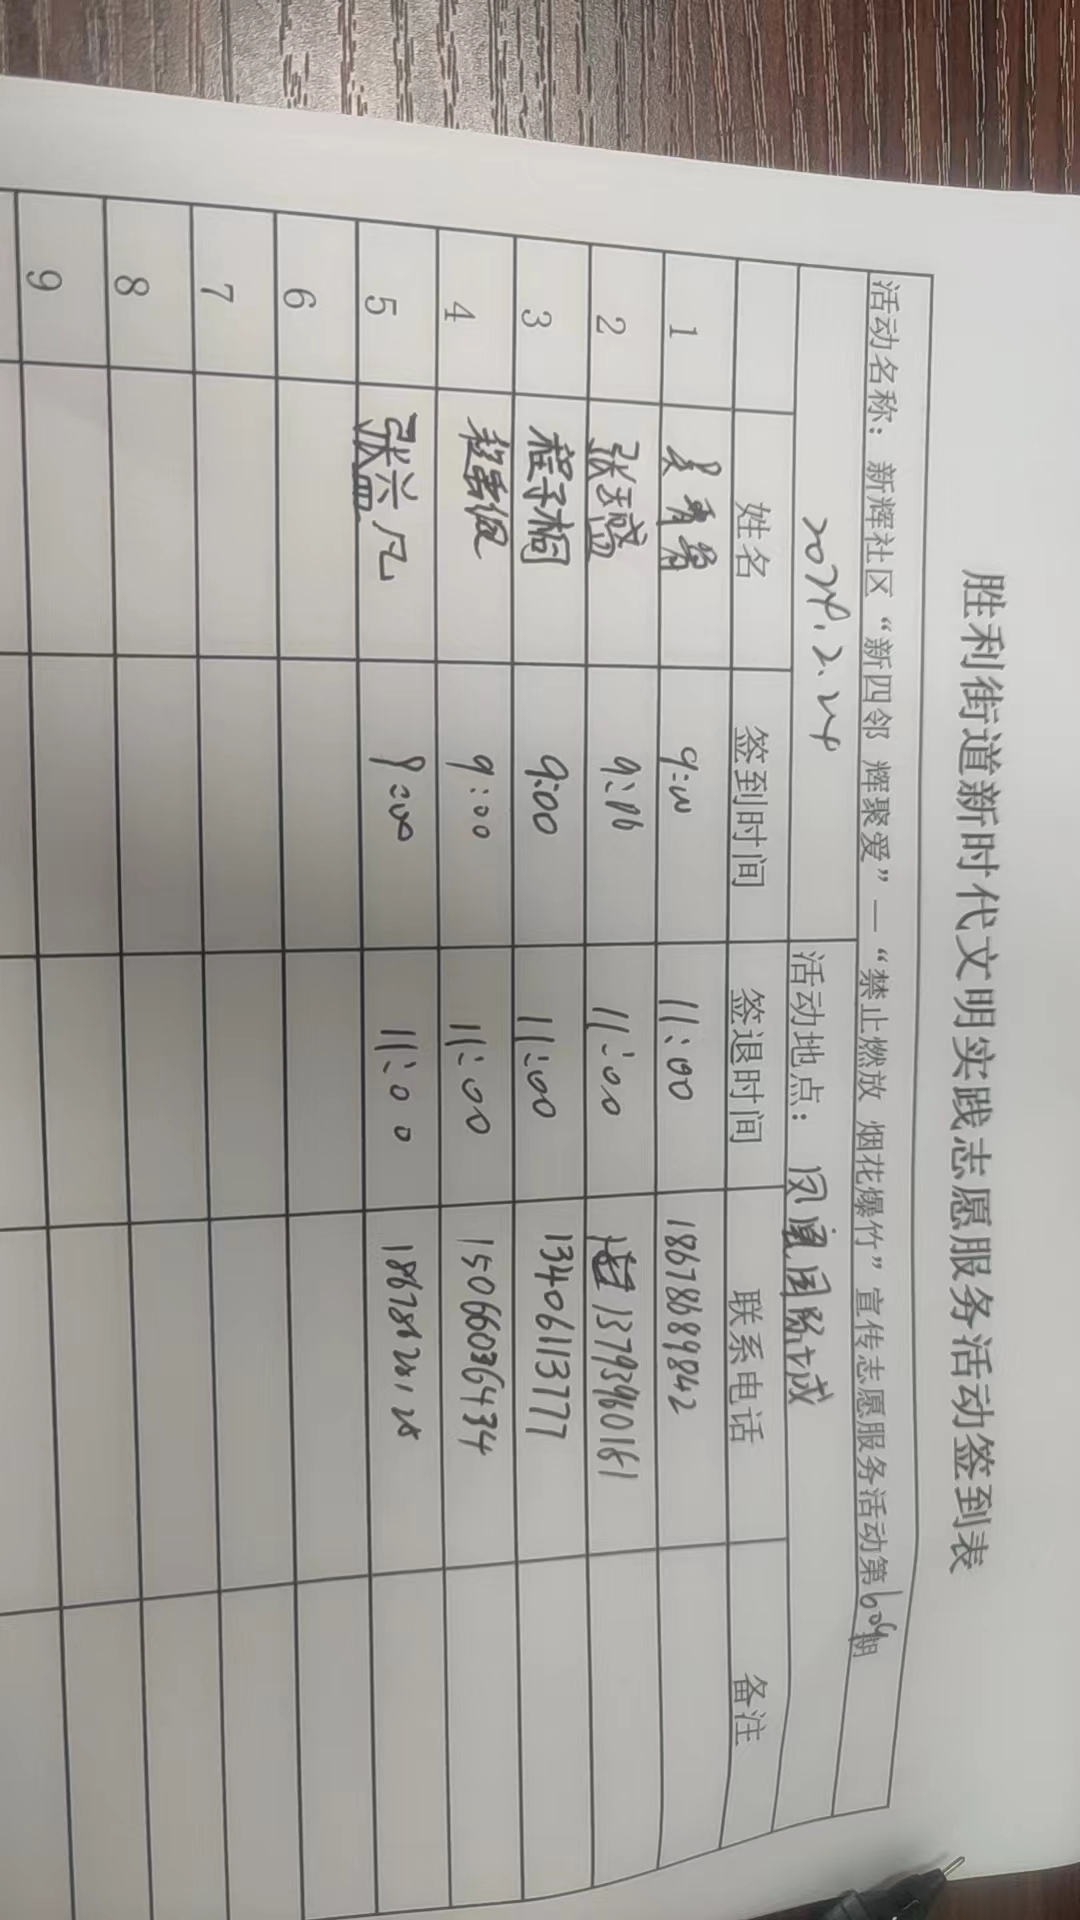 胜利街道新时代文明实践志愿服务活动签到表
活动名称：新辉社区“新四邻 辉聚爱”—“禁止燃放 烟花爆竹”宣传志愿服务活动第609期
2024.2.24 活动地点：凤凰国际城
姓名 签到时间 签退时间 联系电话 备注
1 11:00 18678689842
2 张瑞盛 11:00 13793960161
3 程子桐 9:00 11:00 13406113777
4 9:00 11:00 15066036434
5 张兴凡 11:00
6
7
8
9